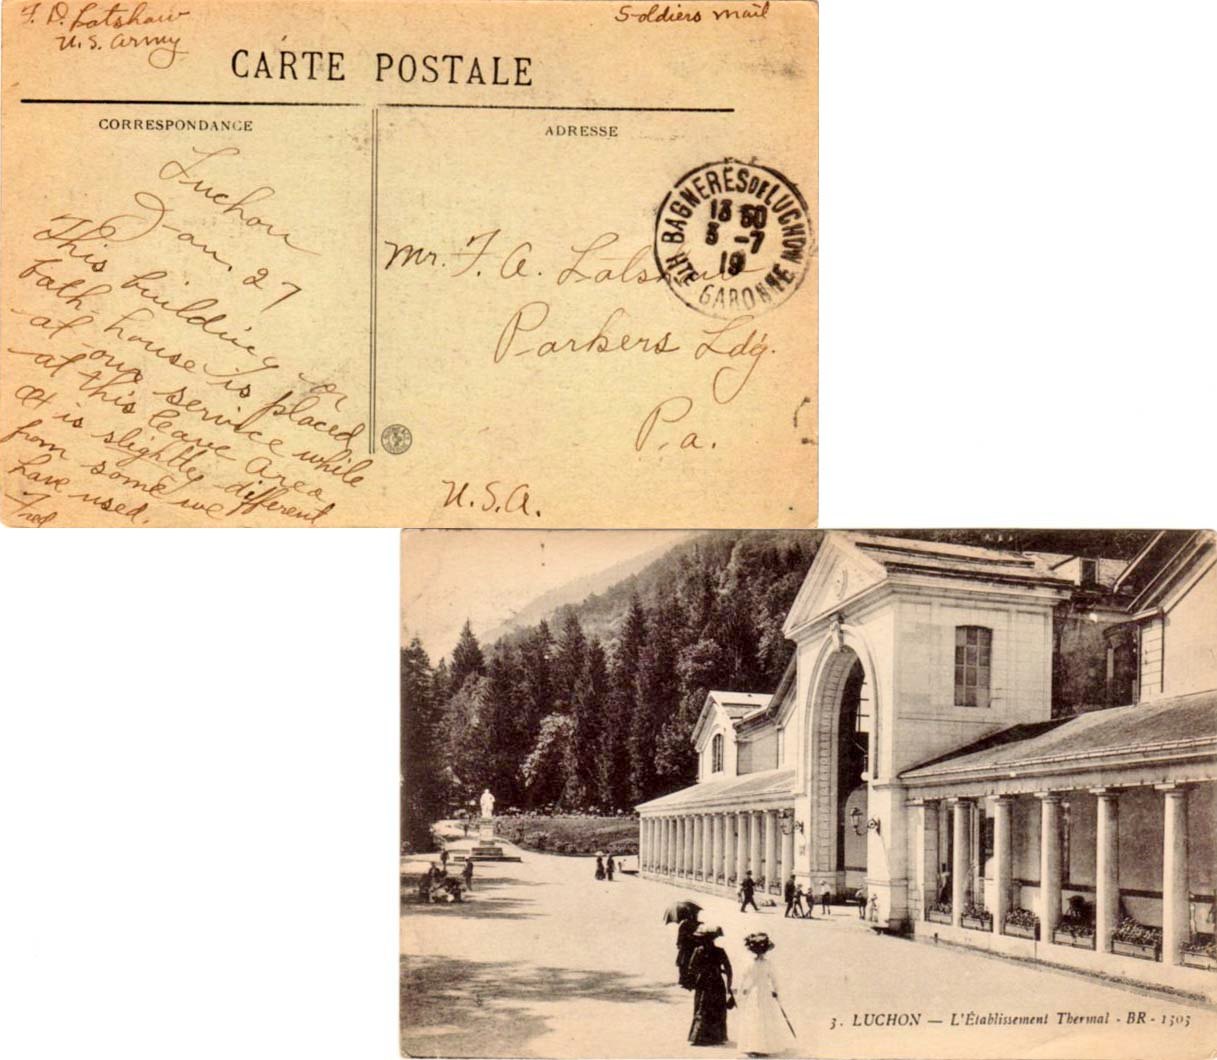 F. D. Latshaw
U.S. Army
Soldiers mail
CARTE POSTALE
CORRESPONDANCE
ADRESSE
Luchon
Jan. 27
This building or
bath-house is placed
at our service while
at this leave area
It is slightly different
from some we
have used.
Fred
BAGNERES DE LUCHON
13 30
3 -7
19
HTE GARONNE
Mr. F. A. Latshaw
Parkers Ldg.
Pa.
U.S.A.
3. LUCHON — L'Établissement Thermal - BR - 1303